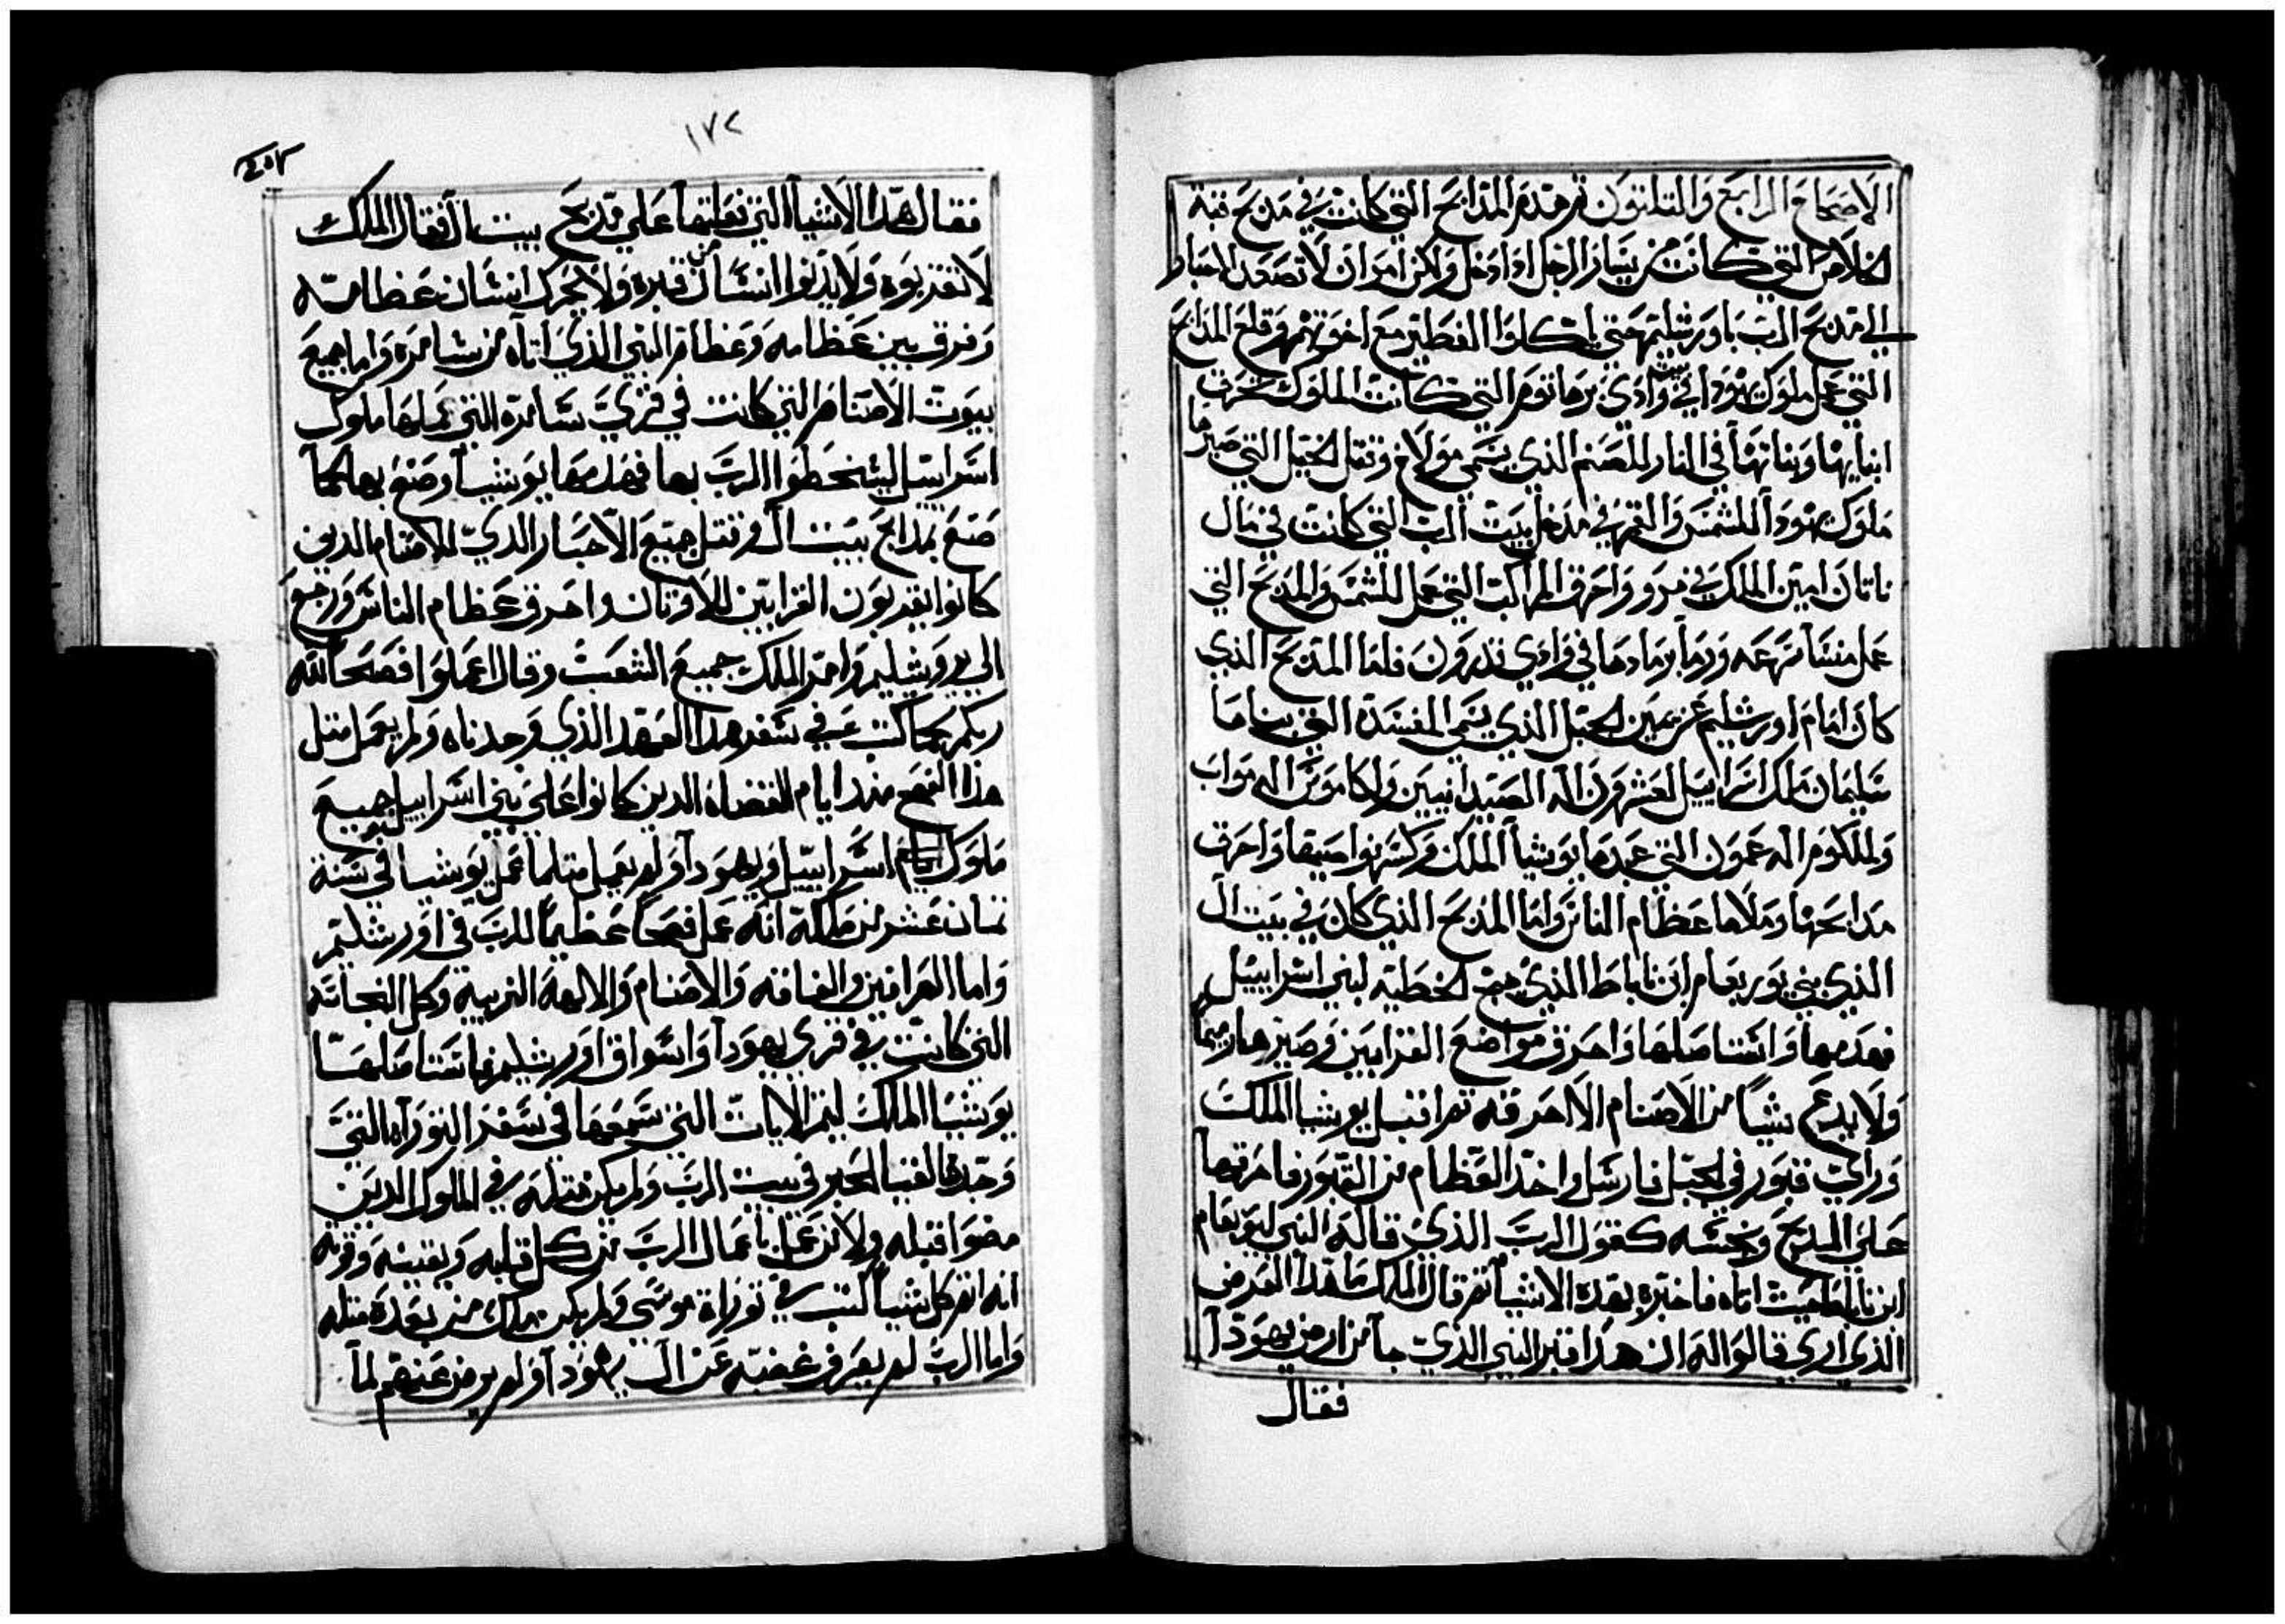 الاصحاح الرابع والتلتون تم هدم المدابح التي كانت في مدبح قبة
الخلاص التي كانت من يسار الرجل ادا دخل ولكن امر ان لا تصعد الاحباط
الي مدبح الرب باورشليم حتي ياكلوا الفطير مع اخوتهم وقلع المدابح
التي عمل ملوك يهودا في وادي برهانوم التي كانت الملوك تحرق
ابنايها وبناتها في النار للصنم الذي يسمي مولاخ وقتل الخيل التي صيرها
ملوك يهودا للشمس والقمر في مدخل بيت الرب التي كانت في مال
ناتان امين الملك في فرور واحرق المراكب التي عمل للشمس والمدبح التي
عمل منسا نزعه ورما برمادها في وادي قدرون فاما المدبح الذي
كان امام اورشليم عن يمين الجبل الذي يسمي المفسدة التي بناها
سليمان ملك اسراييل لعشترون اله الصيدانيين ولكاموش اله مواب
ولملكوم اله عمون التي عبدها يوشيا الملك وكسرهوا صيقا واحرق
مدابحها وملاها عظام الناس واما المدبح الذي كان في بيت ال
الذي بني يوربعام ابن ناباط الذي هيج الخطية لبني اسراييل
فهدمها واستاصلها واحرق مواضع القرابين وصيرها رميما
ولا يدع شيا من الاصنام الا احرقه تم اقبل يوشيا الملك
وراي قبور في الجبل فارسل واخد العظام من القبور فاحرقها
علي المدبح ونجسه كقول الرب الذي قاله النبي ليوربعام
ابن ناباط حيث اتاه فاخبره بهده الاشيا تم قال الملك ما هدا القبر
الذي اري قالوا له ان هدا قبر النبي الذي جا من ارض يهودا
فقال
١٧٢
فقال هدا الاشيا التي فعلتها علي مدبح بيت ال فقال الملك
لا تقربوه ولا يدنوا انسان من قبره ولا يحرك انسان عظامه
وفرق بين عظامه وعظام النبي الذي اتاه من سامرة واما جميع
بيوت الاصنام التي كانت في قري سامرة التي عملها ملوك
اسراييل ليسخطوا الرب بها فهدمها يوشيا وصنع بها كما
صنع بمدابح بيت ال وقتل جميع الاحبار الدي للاصنام الدين
كانوا يقربون القرابين للاوتان واحرق عظام الناس ورجع
الي يروشليم وامر الملك جميع الشعب وقال اعملوا فصحا لله
ربكم كما كتب في سفر هدا العهد الذي وجدناه ولم يعمل متل
هذا الفصح مند ايام القضاة الدين كانوا علي بني اسراييل جميع
ملوك اسراييل ويهودا ولم يعمل متلما عمل يوشيا في سنة
تمان عشر من ملكه انه عمل فصحا عظيما للرب في اورشليم
واما العرافين والقافه والاصنام والالهة الغريبه وكل النجاسه
التي كانت في قري يهودا واسواق اورشليم فاستاصلها
يوشيا الملك ليتم الايات التي سمعها في سفر التوراة التي
وجدها لقيا الحبر في بيت الرب ولم يكن متله في الملوك الدين
مضوا قبله ولا من عمل باعمال الرب من كل قلبه وبنفسه وقوته
انه اتم كل شيا كتب في توراة موسي ولم يكن ملك من بعده متله
واما الرب لم يصرف غضبه عن ال يهودا ولم يرض عنهم لما